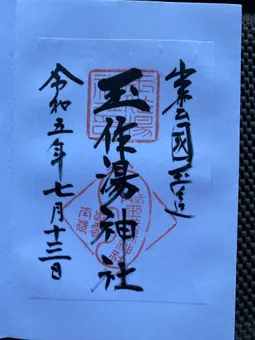 出雲國玉造
玉作湯神社
令和五年七月十三日